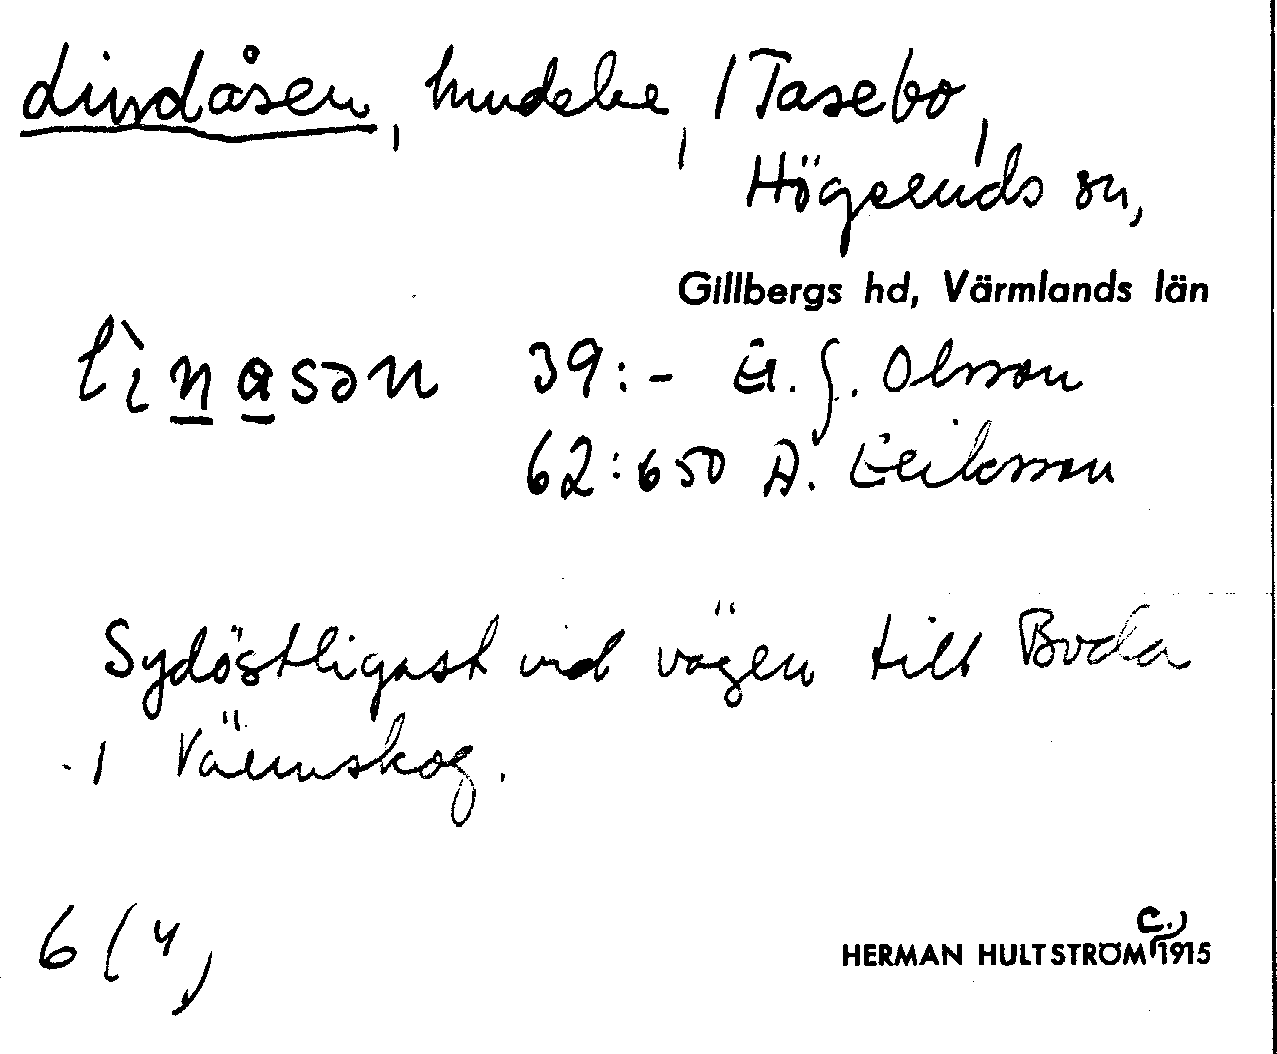 Lindåsen, hmdele, i Tasebo,
Högeruds sn,
Gillbergs hd, Värmlands län
lìnasən 39:- E. J. Olsson
62:650 A. Eriksson
Sydöstligast vid vägen till Boda
i Värmskog.
6 (4)
HERMAN HULTSTRÖM C. 1915